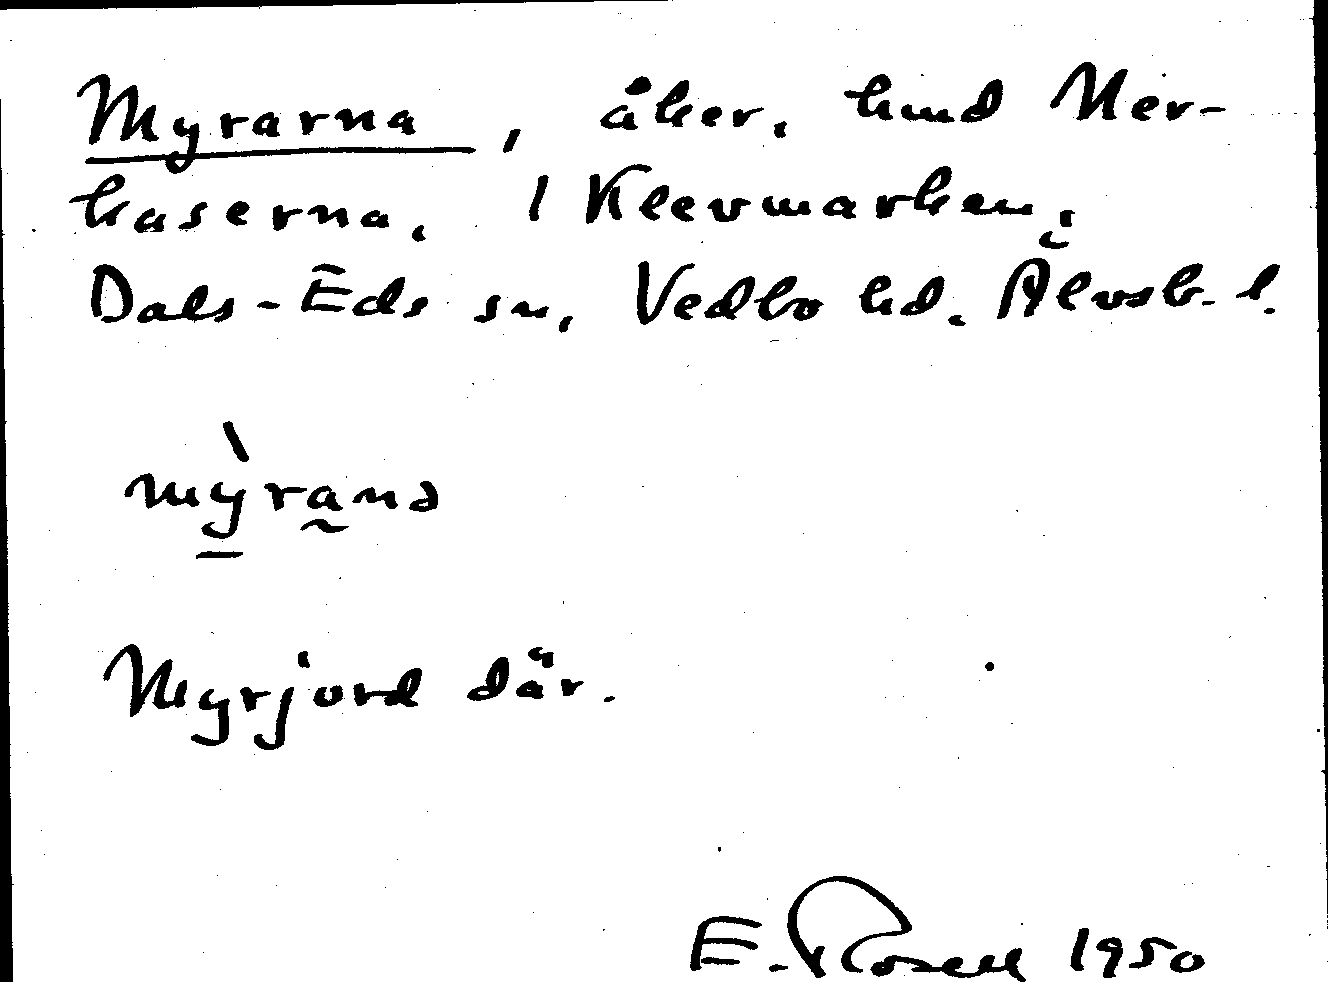 Myrarna, åker, hmd Ner-
kaserna, 1 Klevmarken,
Dals-Eds sn, Vedbo hd. Älvsb. l.
mỳranə
Myrjord där.
E. Rosell 1950